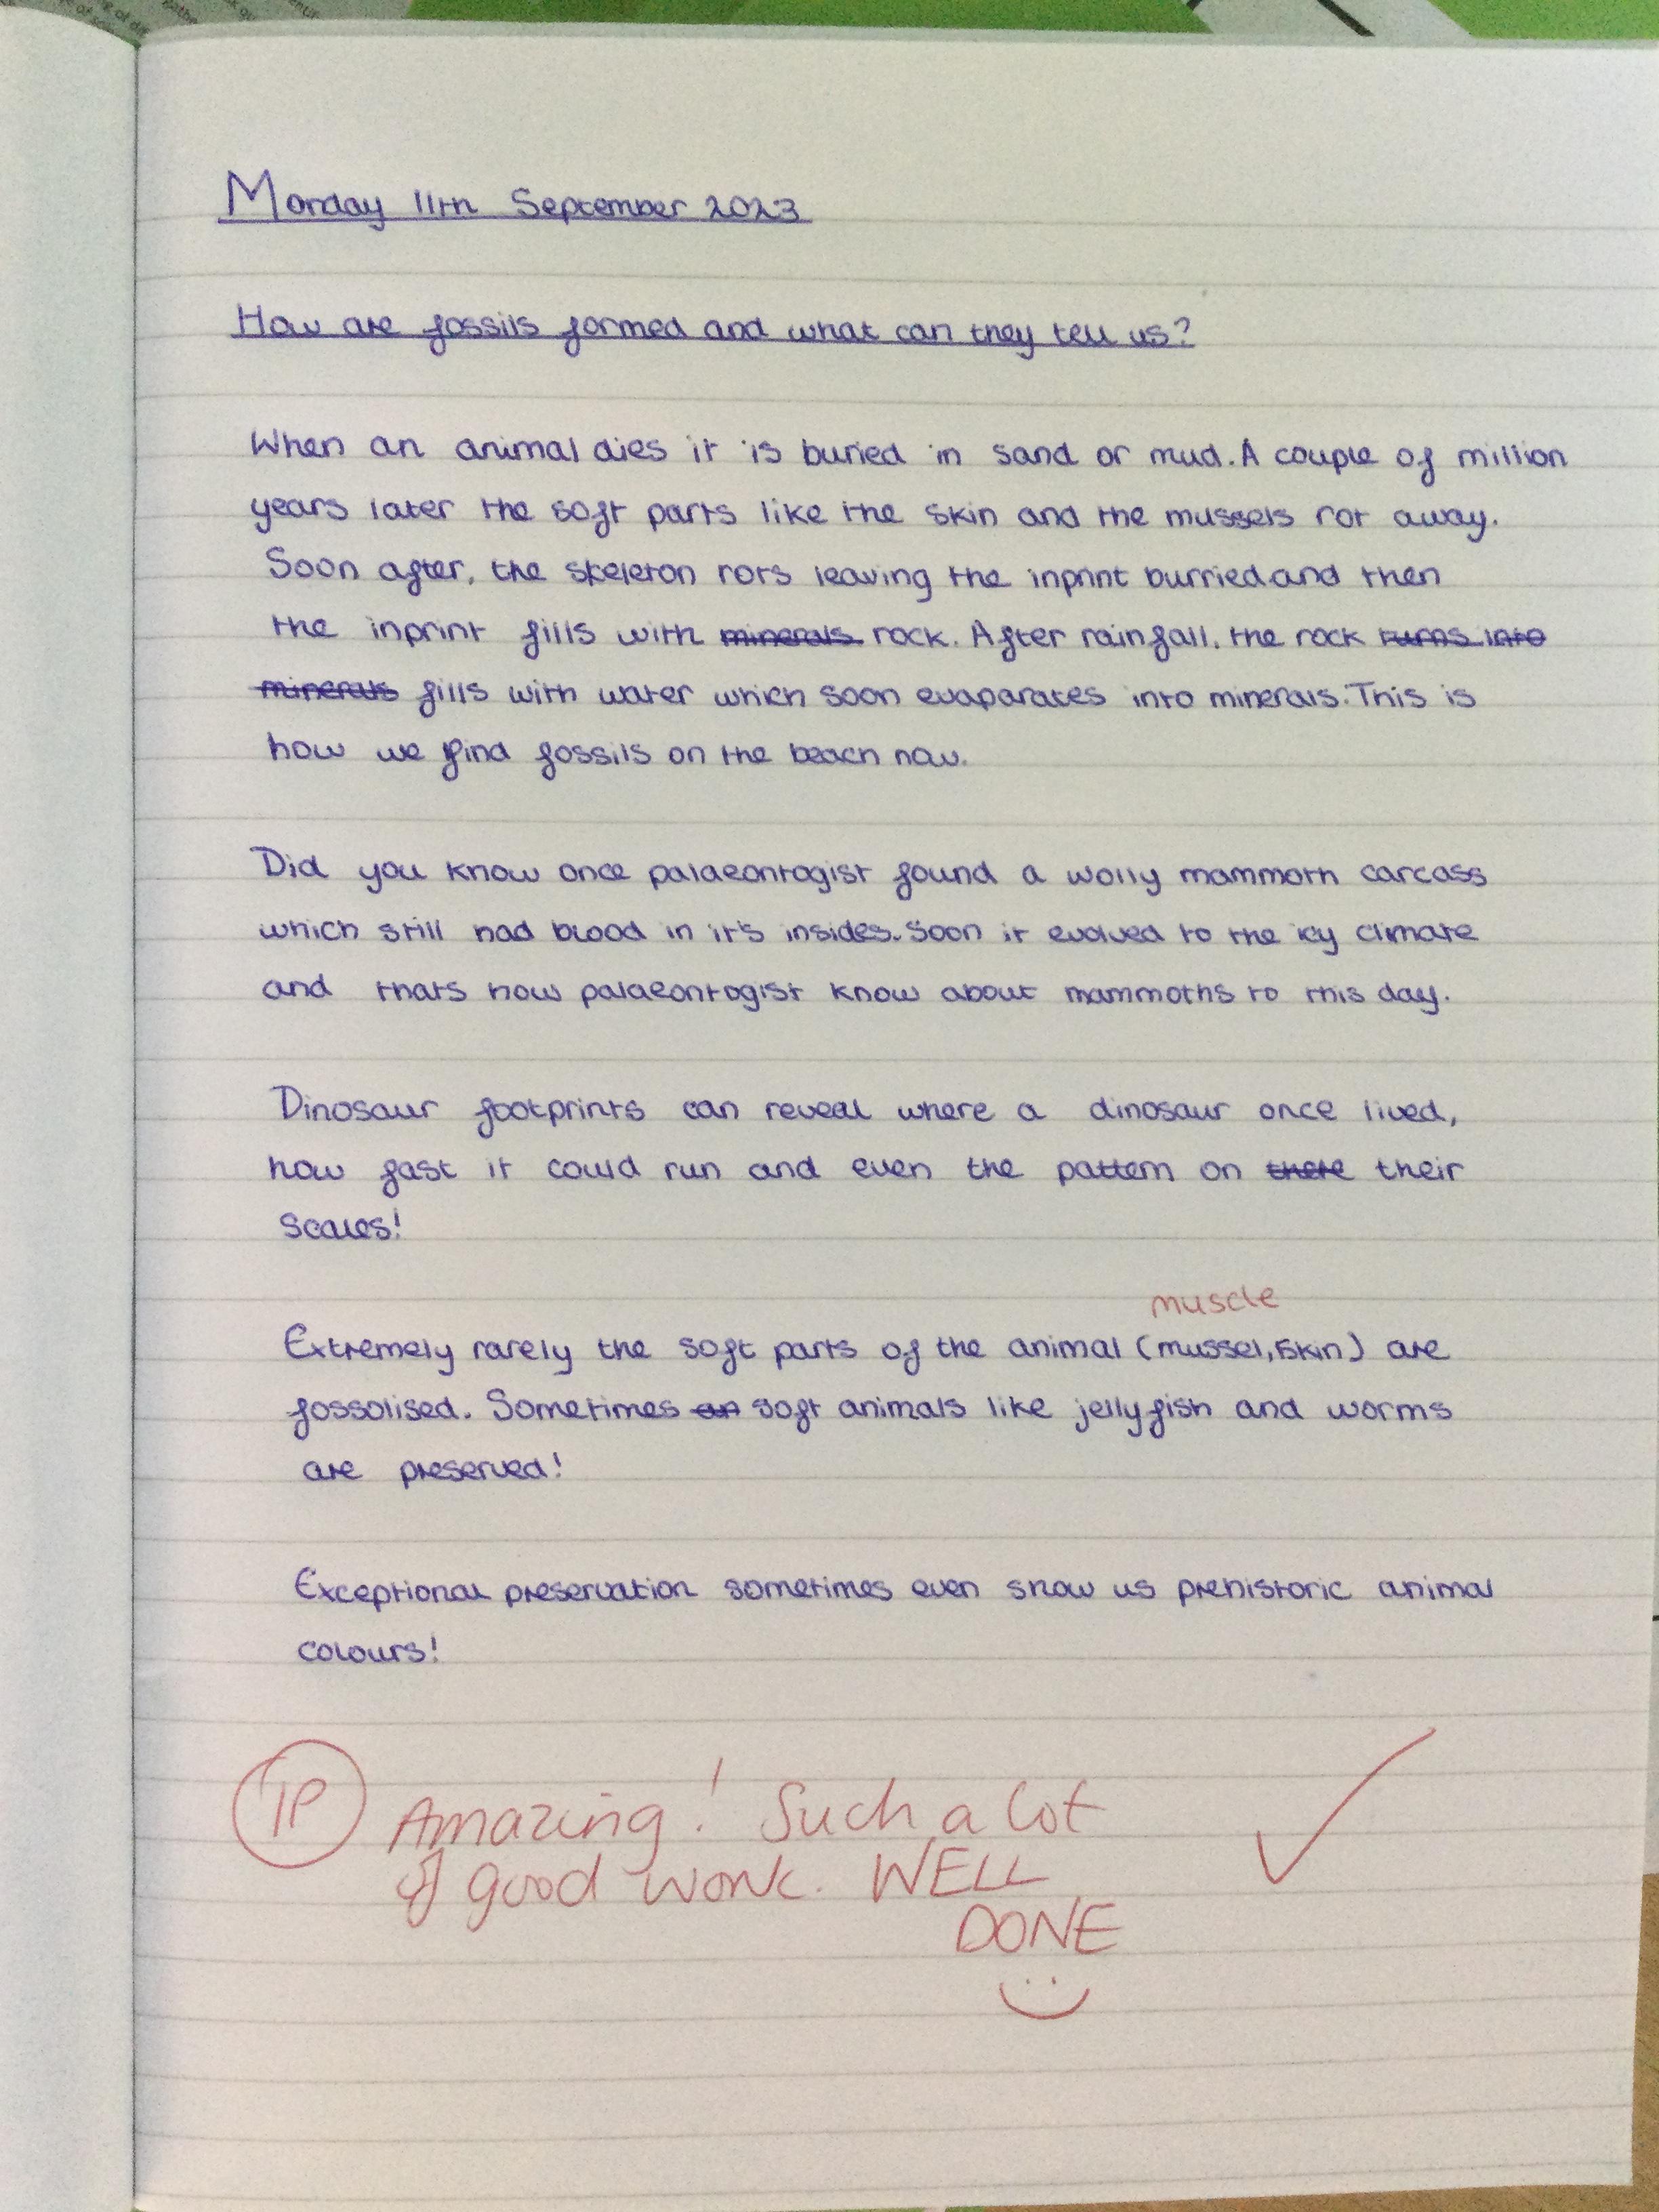 Monday 11th September 2023
How are fossils formed and what can they tell us?
When an animal dies it is buried in sand or mud. A couple of million
years later the soft parts like the skin and the mussels rot away.
Soon after, the skeleton rots leaving the inprint burried and then
the inprint fills with minerals rock. After rainfall, the rock turns into
minerals fills with water which soon evaparates into minerals. This is
how we find fossils on the beach now.
Did you know once palaeontagist found a wolly mammoth carcass
which still had blood in it's insides. Soon it evolved to the icy climate
and thats how palaeontogist know about mammoths to this day.
Dinosaur footprints can reveal where a dinosaur once lived,
how fast it could run and even the pattern on there their
scales!
muscle
Extremely rarely the soft parts of the animal (mussel, skin) are
fossolised. Sometimes an soft animals like jellyfish and worms
are preserved!
Exceptional preservation sometimes even show us prehistoric animal
colours!
TP Amazing! Such a lot
of good work. WELL
DONE